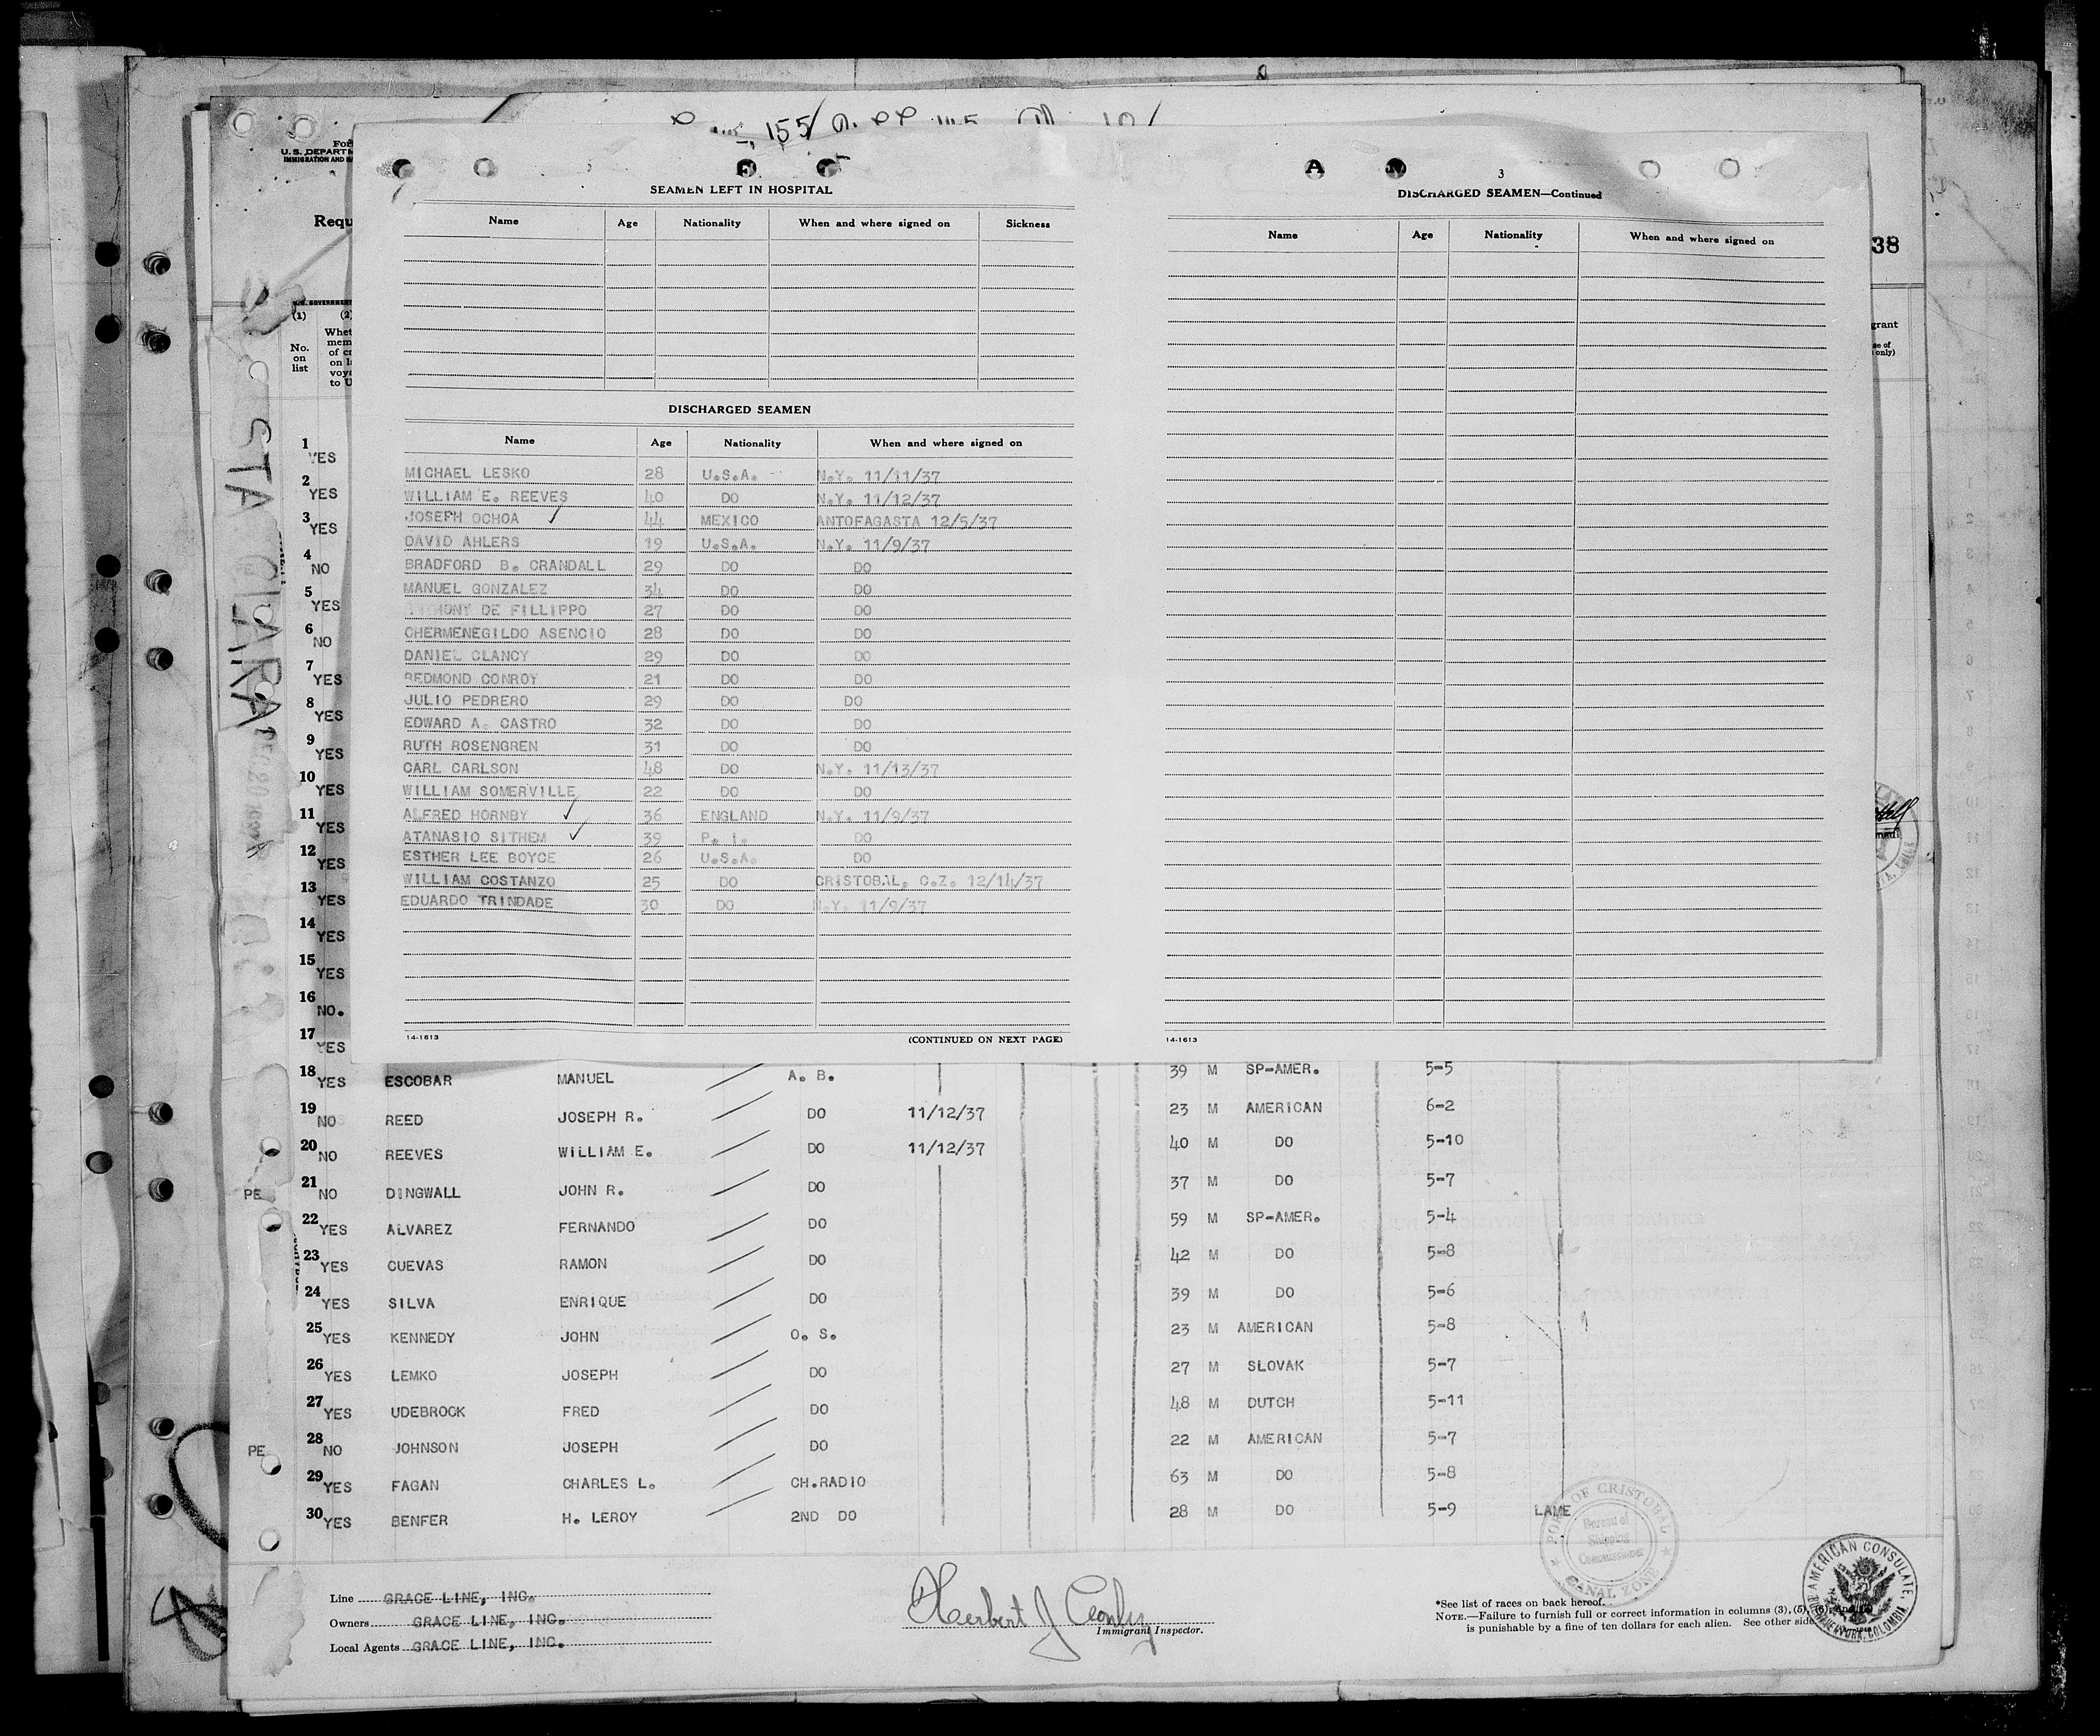 155
For
U. S. DEPARTM
IMMIGRATION AND
Requ
38
STA CLARA
(1) (2)
No. on list
Whet
mem
of cr
on l
voy
to U
grant
only)
SEAMEN LEFT IN HOSPITAL
Name Age Nationality When and where signed on Sickness
DISCHARGED SEAMEN
Name Age Nationality When and where signed on
MICHAEL LESKO 28 U.S.A. N.Y. 11/11/37
WILLIAM E. REEVES 40 DO N.Y. 11/12/37
JOSEPH OCHOA ✓ 44 MEXICO ANTOFAGASTA 12/5/37
DAVID AHLERS 19 U.S.A. N.Y. 11/9/37
BRADFORD B. CRANDALL 29 DO DO
MANUEL GONZALEZ 34 DO DO
THONY DE FILLIPPO 27 DO DO
CHERMENEGILDO ASENCIO 28 DO DO
DANIEL CLANCY 29 DO DO
REDMOND CONROY 21 DO DO
JULIO PEDRERO 29 DO DO
EDWARD A. CASTRO 32 DO DO
RUTH ROSENGREN 31 DO DO
CARL CARLSON 48 DO N.Y. 11/13/37
WILLIAM SOMERVILLE 22 DO DO
ALFRED HORNBY ✓ 36 ENGLAND N.Y. 11/9/37
ATANASIO SITHEM ✓ 39 P. I. DO
ESTHER LEE BOYCE 26 U.S.A. DO
WILLIAM COSTANZO 25 DO CRISTOBAL, C.Z. 12/14/37
EDUARDO TRINDADE 30 DO N.Y. 11/9/37
14-1613 (CONTINUED ON NEXT PAGE)
3
DISCHARGED SEAMEN—Continued
Name Age Nationality When and where signed on
14-1613
1 YES
2 YES
3 YES
4 NO
5 YES
6 NO
7 YES
8 YES
9 YES
10 YES
11 YES
12 YES
13 YES
14 YES
15 YES
16 NO.
17 YES
18 YES ESCOBAR MANUEL A. B. 39 M SP-AMER. 5-5
19 NO REED JOSEPH R. DO 11/12/37 23 M AMERICAN 6-2
20 NO REEVES WILLIAM E. DO 11/12/37 40 M DO 5-10
PE 21 NO DINGWALL JOHN R. DO 37 M DO 5-7
22 YES ALVAREZ FERNANDO DO 59 M SP-AMER. 5-4
23 YES CUEVAS RAMON DO 42 M DO 5-8
24 YES SILVA ENRIQUE DO 39 M DO 5-6
25 YES KENNEDY JOHN O. S. 23 M AMERICAN 5-8
26 YES LEMKO JOSEPH DO 27 M SLOVAK 5-7
27 YES UDEBROCK FRED DO 48 M DUTCH 5-11
PE 28 NO JOHNSON JOSEPH DO 22 M AMERICAN 5-7
29 YES FAGAN CHARLES L. CH.RADIO 63 M DO 5-8
30 YES BENFER H. LEROY 2ND DO 28 M DO 5-9 LAME
PORT OF CRISTOBAL
Bureau of
Shipping
Commissioner
CANAL ZONE
AMERICAN CONSULATE
COLOMBIA
Line GRACE LINE, INC.
Owners GRACE LINE, INC.
Local Agents GRACE LINE, INC.
Herbert J
Immigrant Inspector.
*See list of races on back hereof.
NOTE.—Failure to furnish full or correct information in columns (3), (5),
is punishable by a fine of ten dollars for each alien. See other side